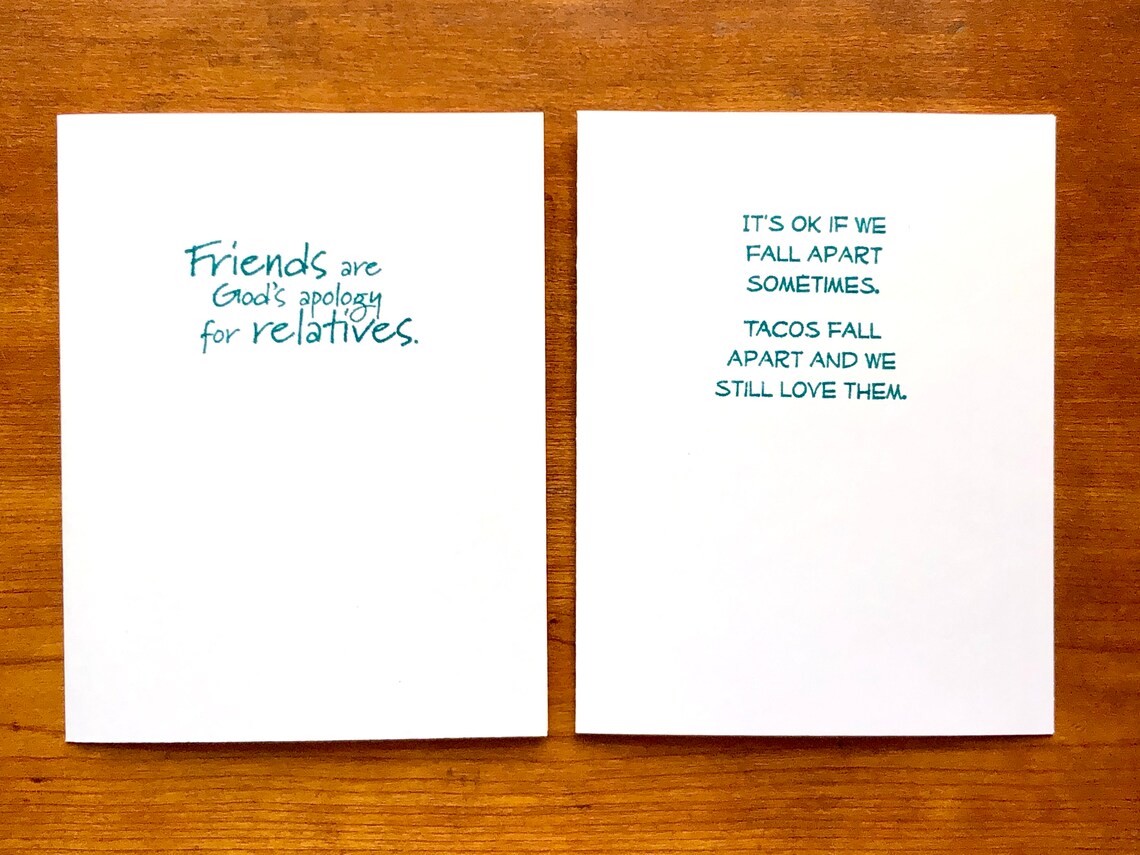 Friends are
God's apology
for relatives.
IT'S OK IF WE
FALL APART
SOMETIMES.
TACOS FALL
APART AND WE
STILL LOVE THEM.